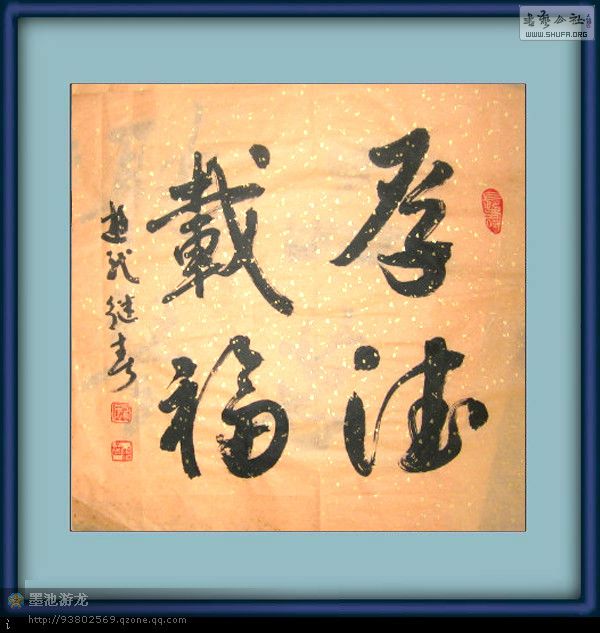 厚德
載福
继春
书艺公社
WWW.SHUFA.ORG
墨池游龙
http://93802569.qzone.qq.com